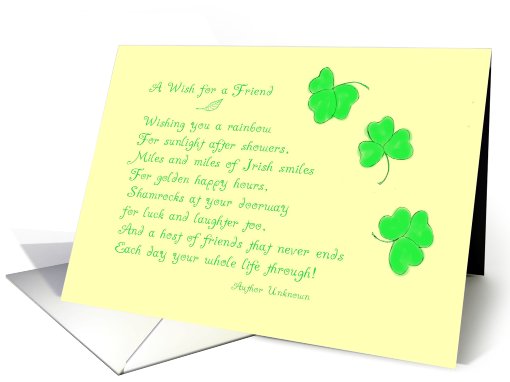 A Wish for a Friend
Wishing you a rainbow
For sunlight after showers,
Miles and miles of Irish smiles
For golden happy hours,
Shamrocks at your doorway
for luck and laughter too,
And a host of friends that never ends
Each day your whole life through!
Author Unknown